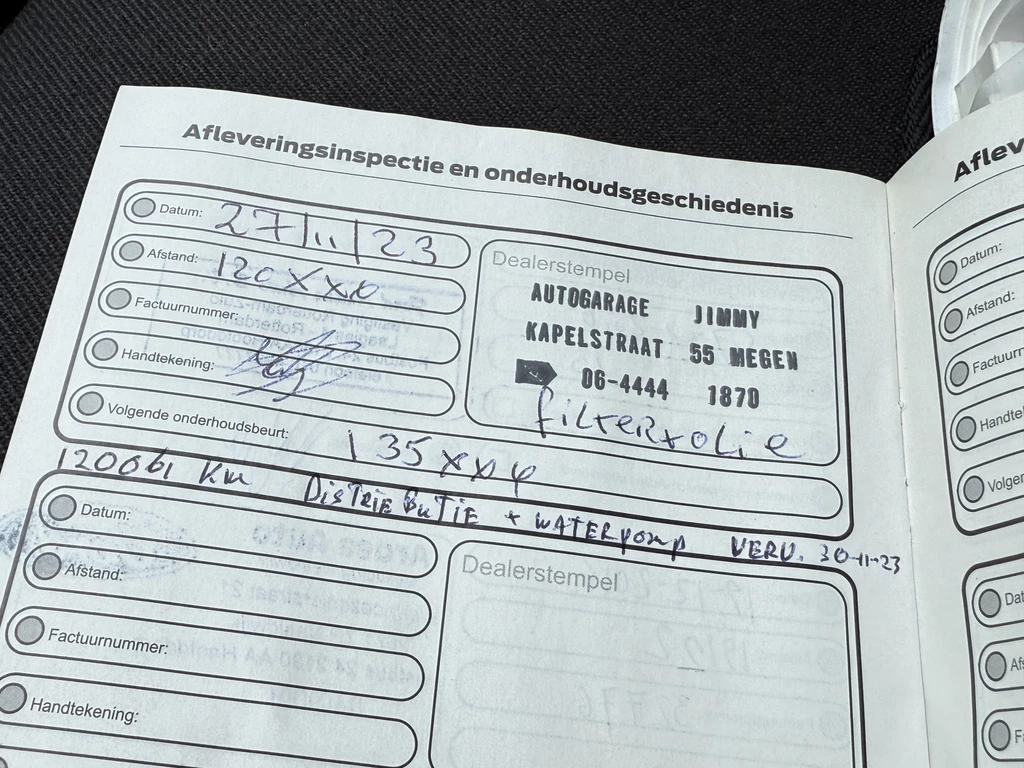 Afleveringsinspectie en onderhoudsgeschiedenis
Datum: 27/11/23
Afstand: 120xxo
Factuurnummer:
Handtekening:
Volgende onderhoudsbeurt: 135xxx
Dealerstempel
AUTOGARAGE JIMMY
KAPELSTRAAT 55 MEGEN
06-4444 1870
filter+olie
120061 Km DISTRIEBUTIE + WATERpomp VERV. 30-11-23
Datum:
Afstand:
Factuurnummer:
Handtekening:
Dealerstempel
Aflev
Datum:
Afstand:
Factuurn
Handte
Volger
Dat
Afs
F